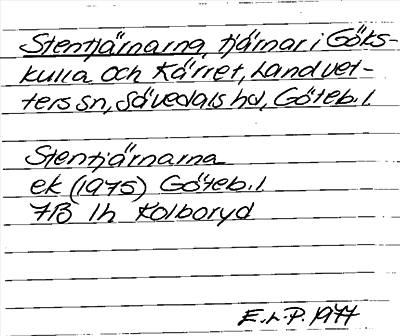 Stentjärnarna, tjärnar i Göks-
kulla och Kärret, Landvet-
ters sn, Sävedals hd, Göteb. l.
Stentjärnarna
ek (1975) Göteb. l
7B 1h Kolboryd
E.L.P. 1977